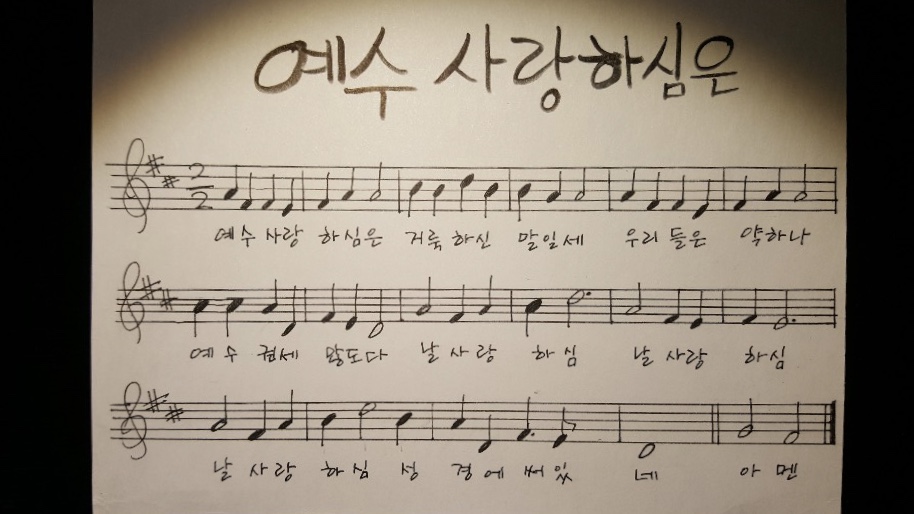 예수 사랑하심은
2
2
예수 사랑 하심은 거룩 하신 말일세 우리 들은 약하나
예수 권세 많도다 날 사랑 하심 날 사랑 하심
날 사랑 하심 성 경에 써 있 네 아 멘